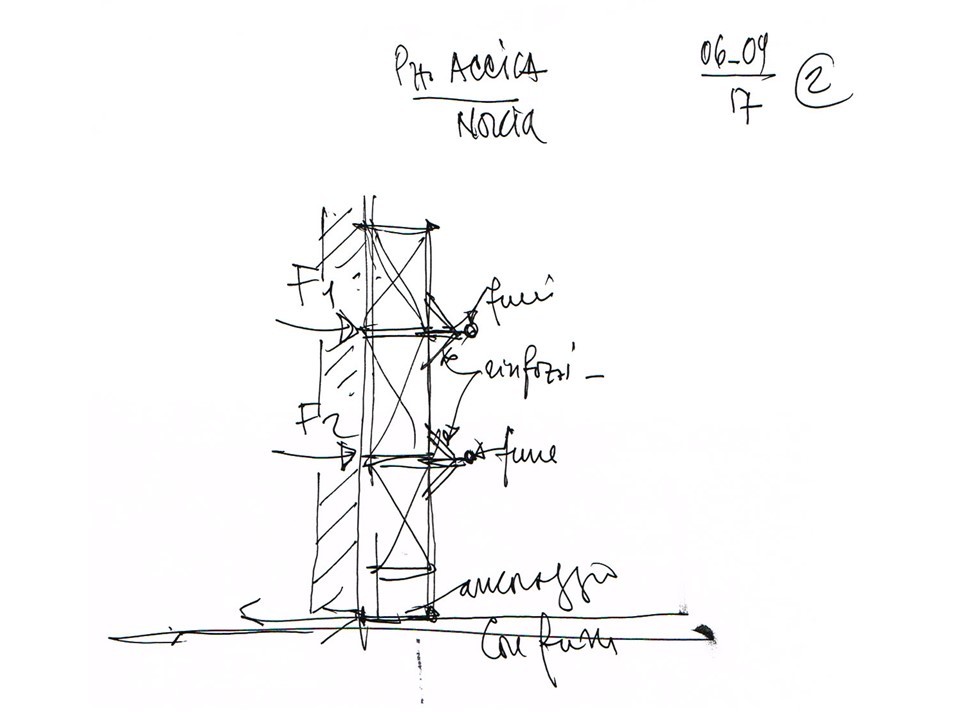 PH. ACCICA
NORCIA
06-09
17
2
F1
funi
rinfozzi -
F2
fune
ancoraggio
con funi